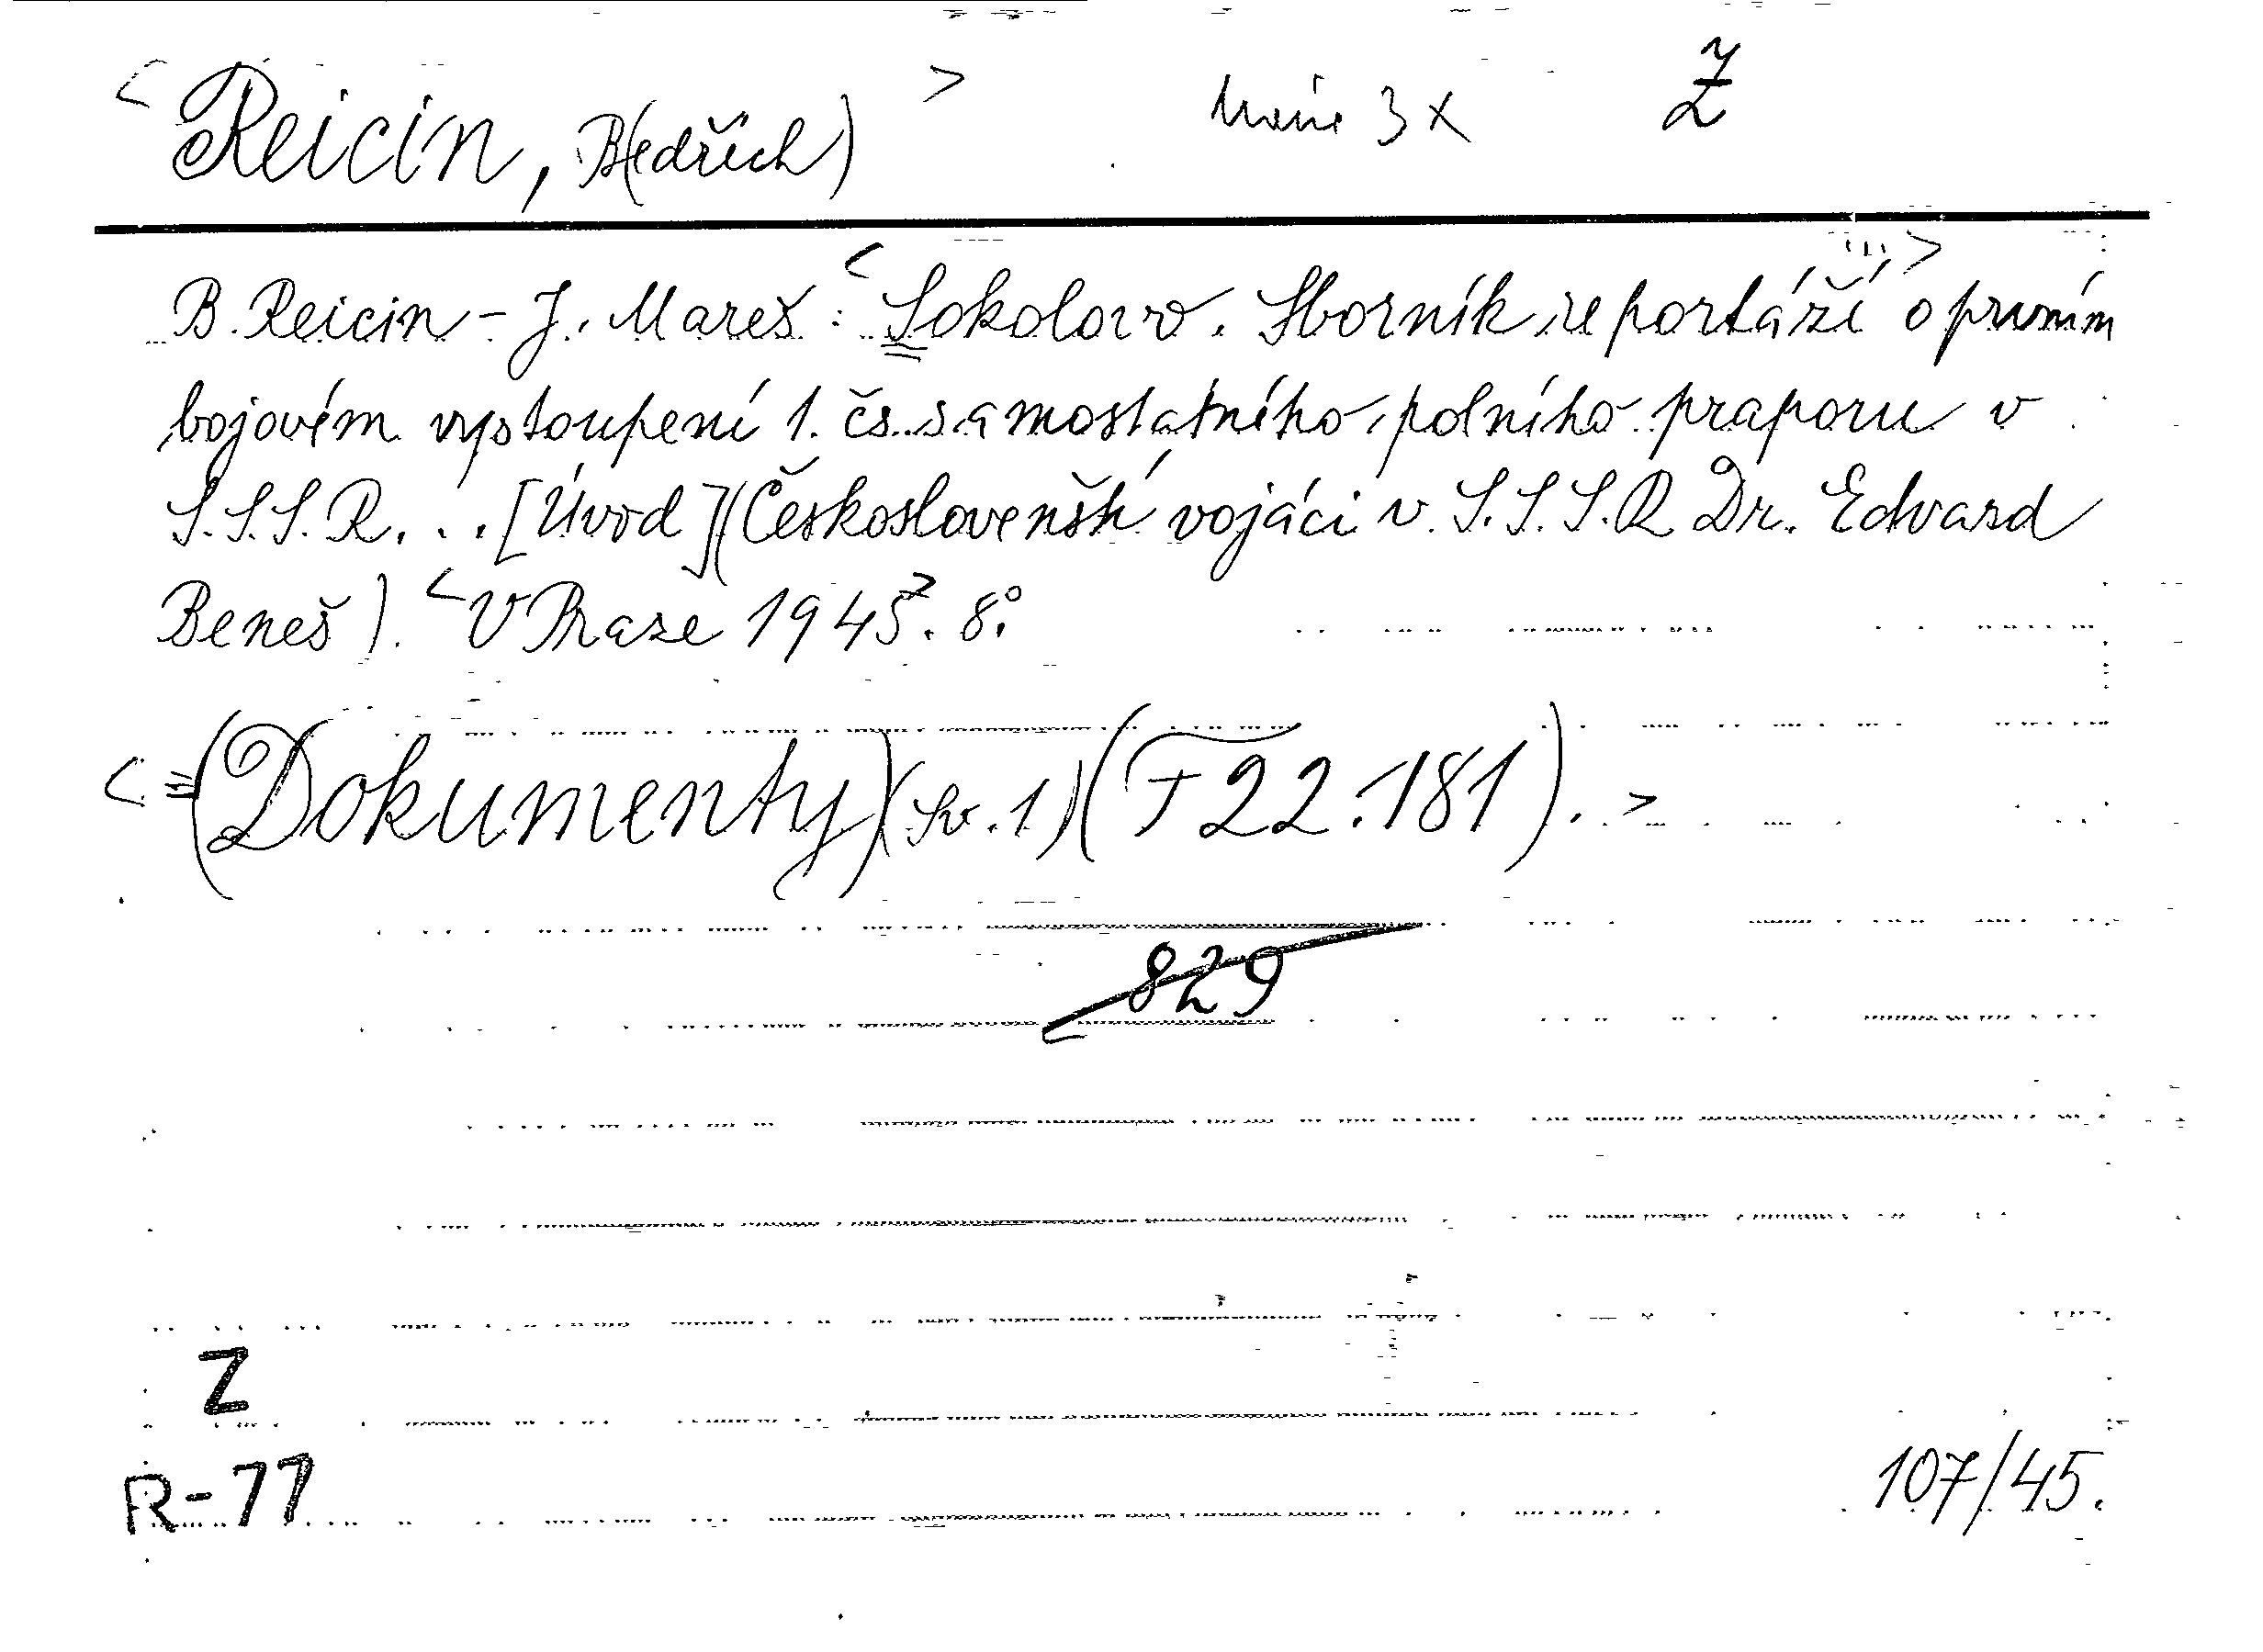 < Reicin, B(edřich) > 3 x Ž
B. Reicin - J. Mareš: < Sokolovo. Sborník reportáží ... > o prvním
bojovém vystoupení 1. čs. samostatného polního praporu v
S.S.S.R. .. [Úvod] (Českoslovenští vojáci v S.S.S.R Dr. Edvard
Beneš). < V Praze 1945 >. 8°.
< = (Dokumenty) (sv. 1) (F 22.181). >
829
Z
R-77
107/45.